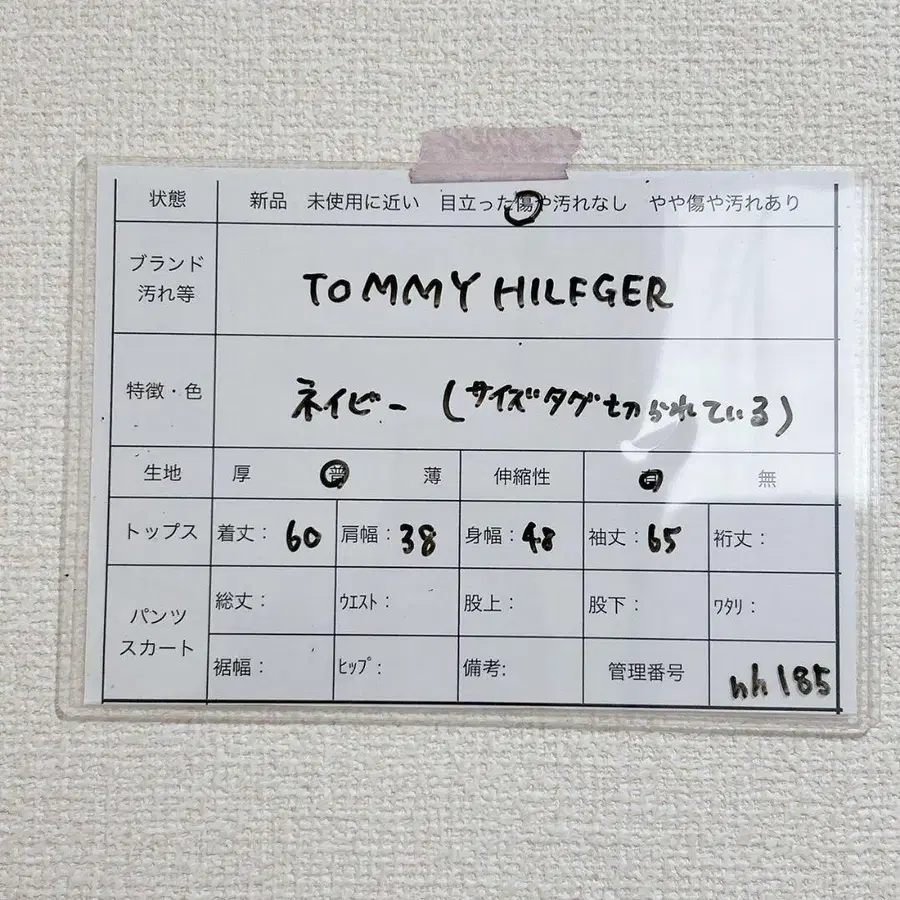 状態 新品 未使用に近い 目立った傷や汚れなし やや傷や汚れあり
ブランド
汚れ等
TOMMY HILFGER
特徴・色 ネイビー (サイズタグ切られている)
生地 厚 普 薄 伸縮性 有 無
トップス 着丈: 60 肩幅: 38 身幅: 48 袖丈: 65 裄丈:
パンツ
スカート
総丈: ｳｴｽﾄ: 股上: 股下: ﾜﾀﾘ:
裾幅: ﾋｯﾌﾟ: 備考: 管理番号 hh185